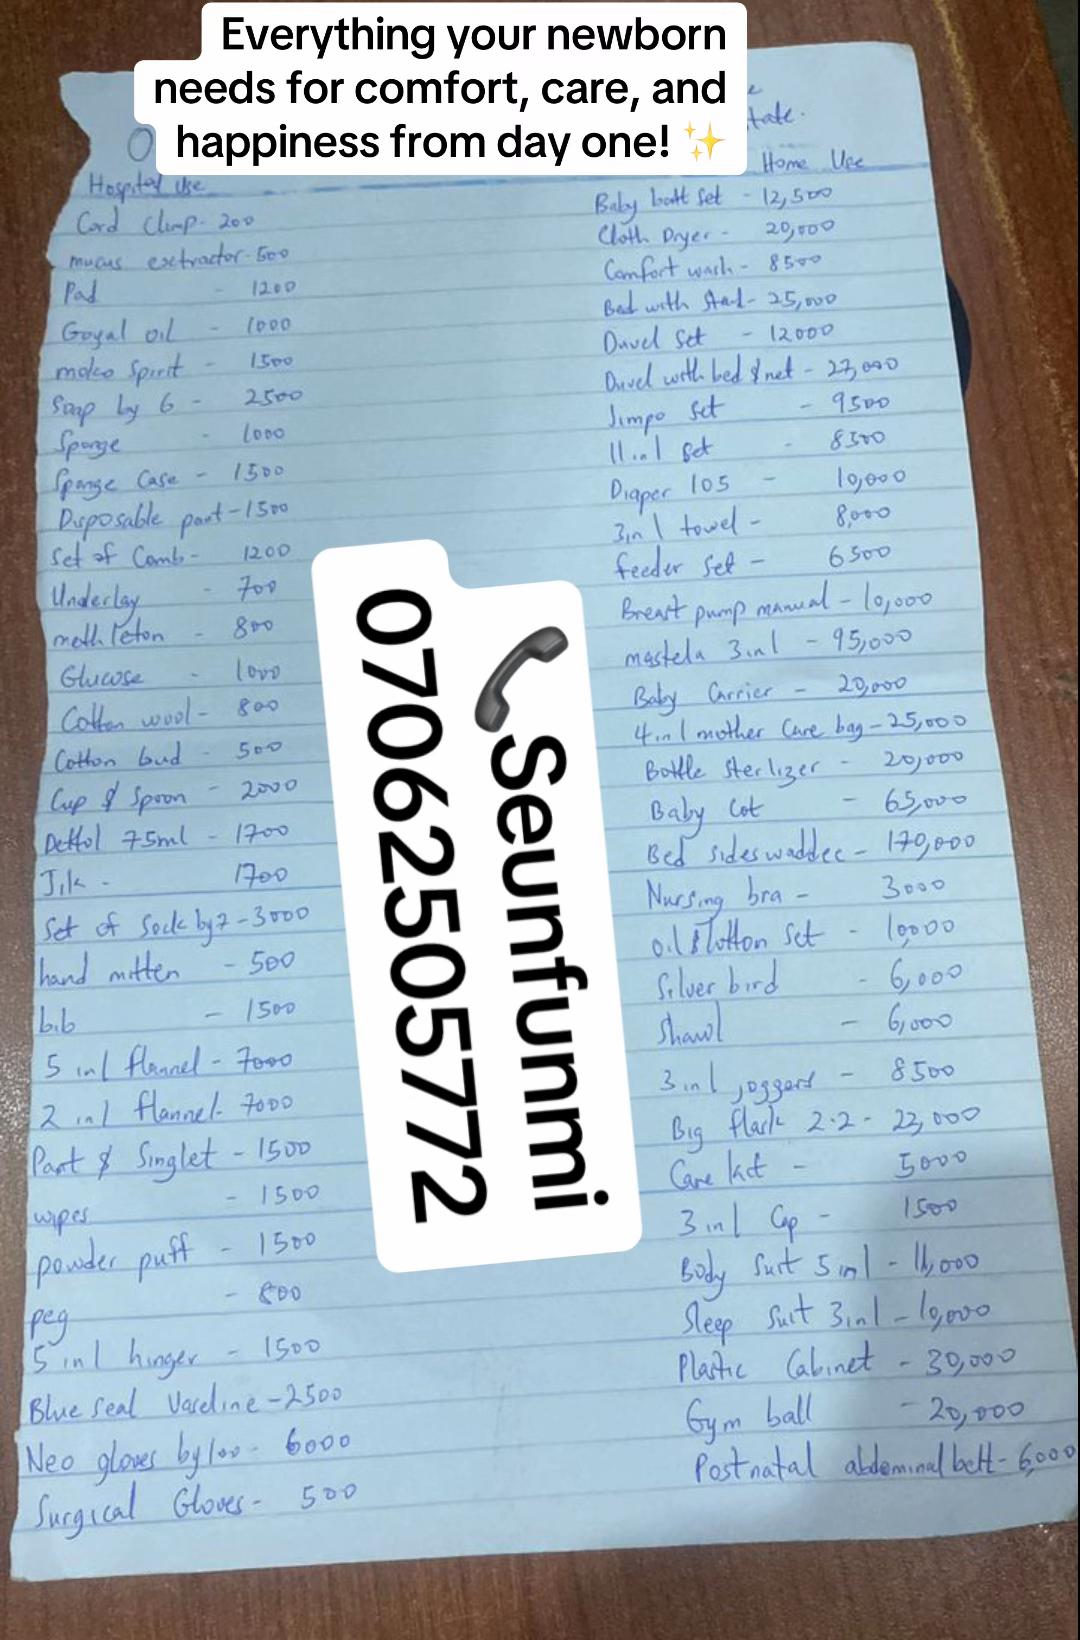 Everything your newborn
needs for comfort, care, and
happiness from day one! ✨
Hospital Use
Cord Clump- 200
mucus extractor- 500
Pad - 1200
Goyal oil - 1000
Spirit - 1500
Soap by 6 - 2500
Sponge - 1000
Sponge Case - 1500
Disposable pant - 1500
Set of Comb - 1200
Underlay - 700
meth leton - 800
Glucose - 1000
Cotton wool - 800
Cotton bud - 500
Cup & Spoon - 2000
Dettol 75ml - 1700
Jik - 1700
Set of Sock by 7 - 3000
hand mitten - 500
bib - 1500
5 in 1 flannel - 7000
2 in 1 flannel - 7000
Pant & Singlet - 1500
wipes - 1500
powder puff - 1500
peg - 800
5 in 1 hinger - 1500
Blue seal Vaseline - 2500
Neo gloves by 100 - 6000
Surgical Gloves - 500
📞Seunfunmi
07062505772
Home Use
Baby batt set - 12,500
Cloth Dryer - 20,000
Comfort wash - 8500
Bed with Stand - 25,000
Duvel Set - 12000
Duvel with bed & net - 27,000
Jimpo set - 9500
11 in 1 set - 8500
Diaper 105 - 10,000
3 in 1 towel - 8,000
feeder set - 6500
Breast pump manual - 10,000
mastela 3 in 1 - 95,000
Baby Carrier - 20,000
4 in 1 mother Care bag - 25,000
Bottle Sterlizer - 20,000
Baby Cot - 65,000
Bed sideswaddee - 170,000
Nursing bra - 3000
oil & lotton set - 10,000
Silver bird - 6,000
Shawl - 6,000
3 in 1 joggers - 8500
Big flask 2.2 - 22,000
Care kit - 5000
3 in 1 Cap - 1500
Body Suit 5 in 1 - 11,000
Sleep Suit 3 in 1 - 10,000
Plastic Cabinet - 30,000
Gym ball - 20,000
Postnatal abdominal belt - 6,000